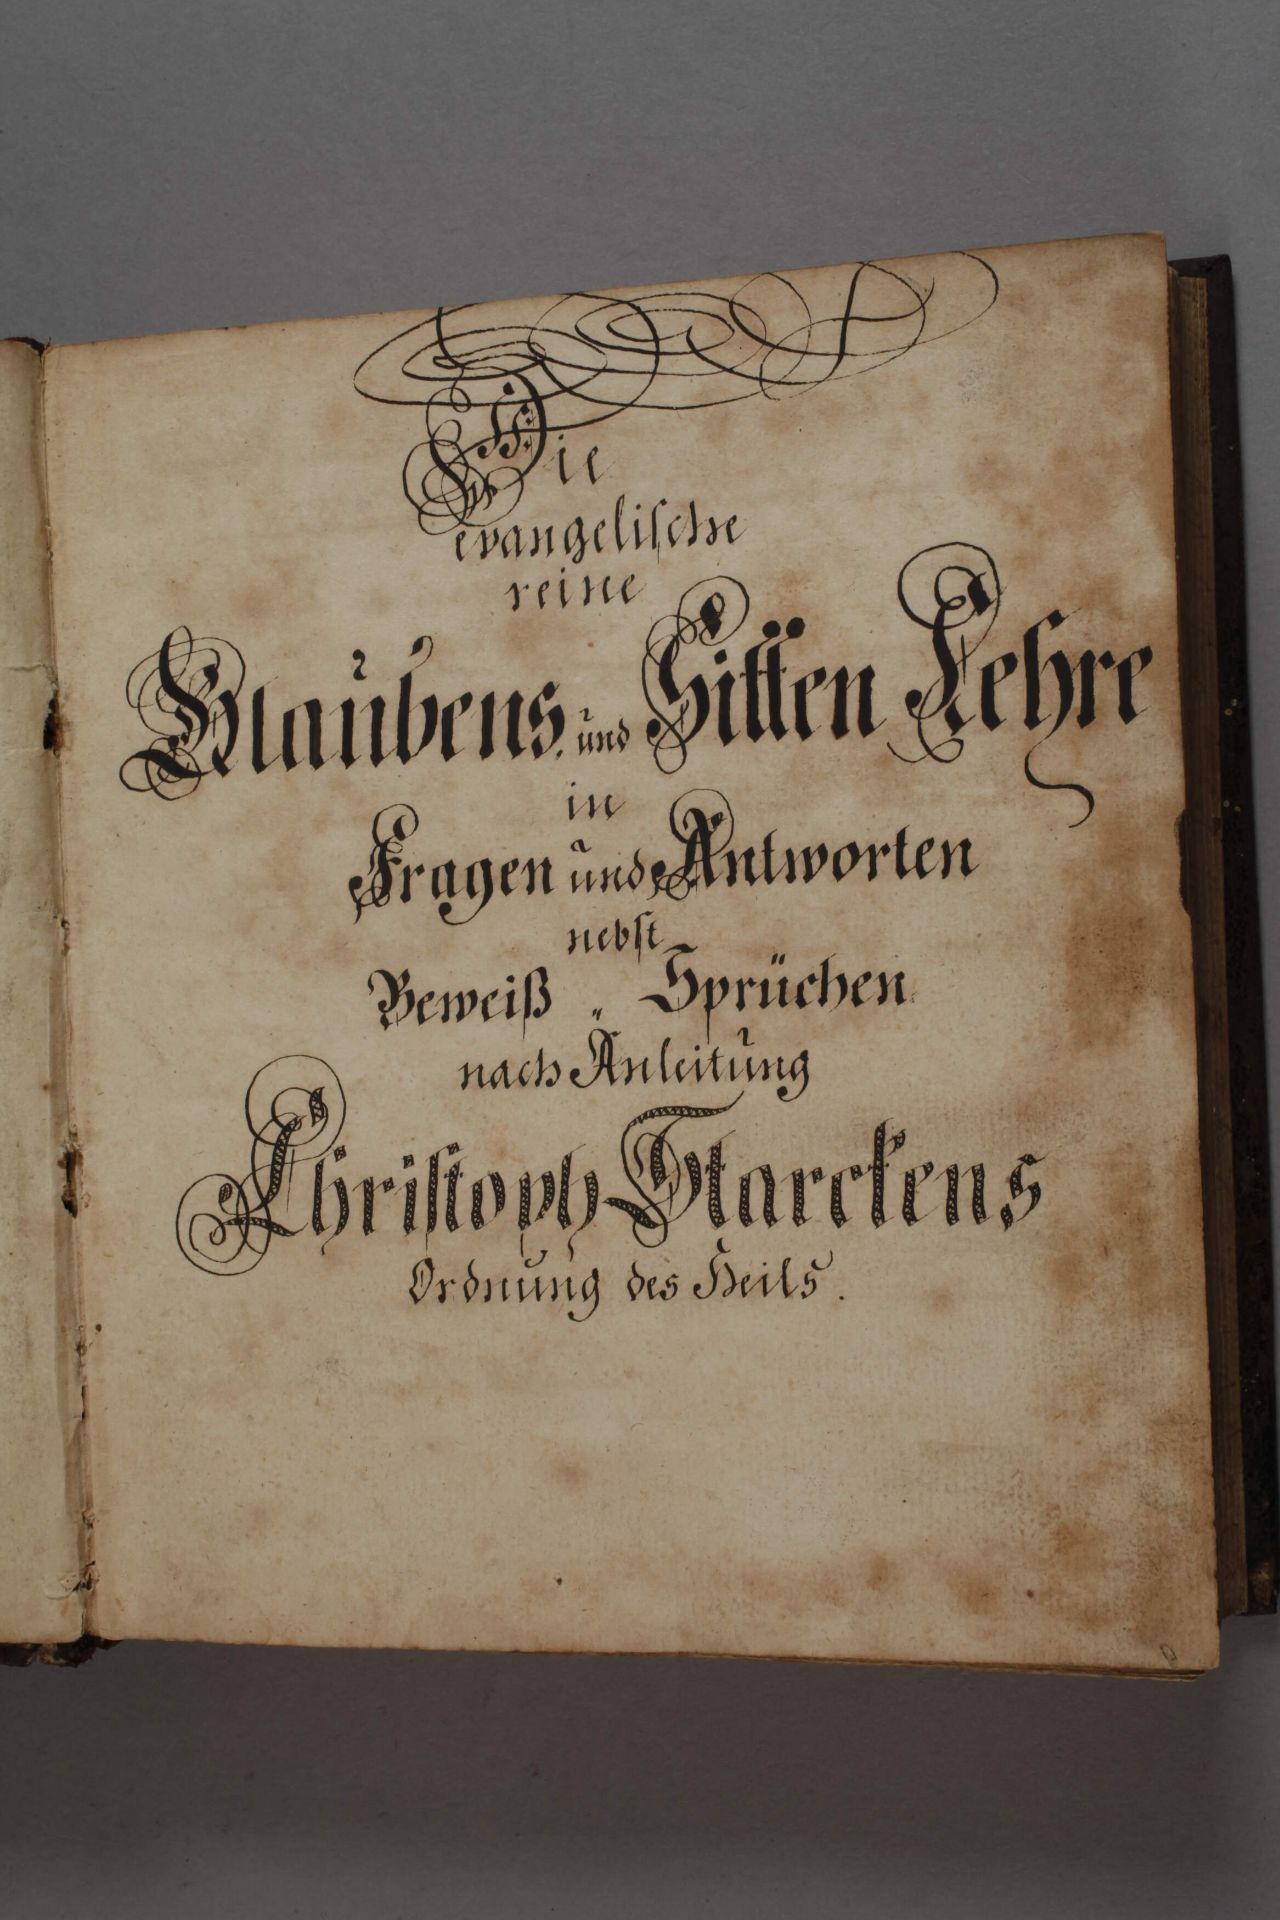 Die
evangelische
reine
Glaubens. und Sitten Lehre
in
Fragen und Antworten
nebst
Beweiß „ Sprüchen
nach Anleitung
Christoph Starckens
Ordnung des Heils.